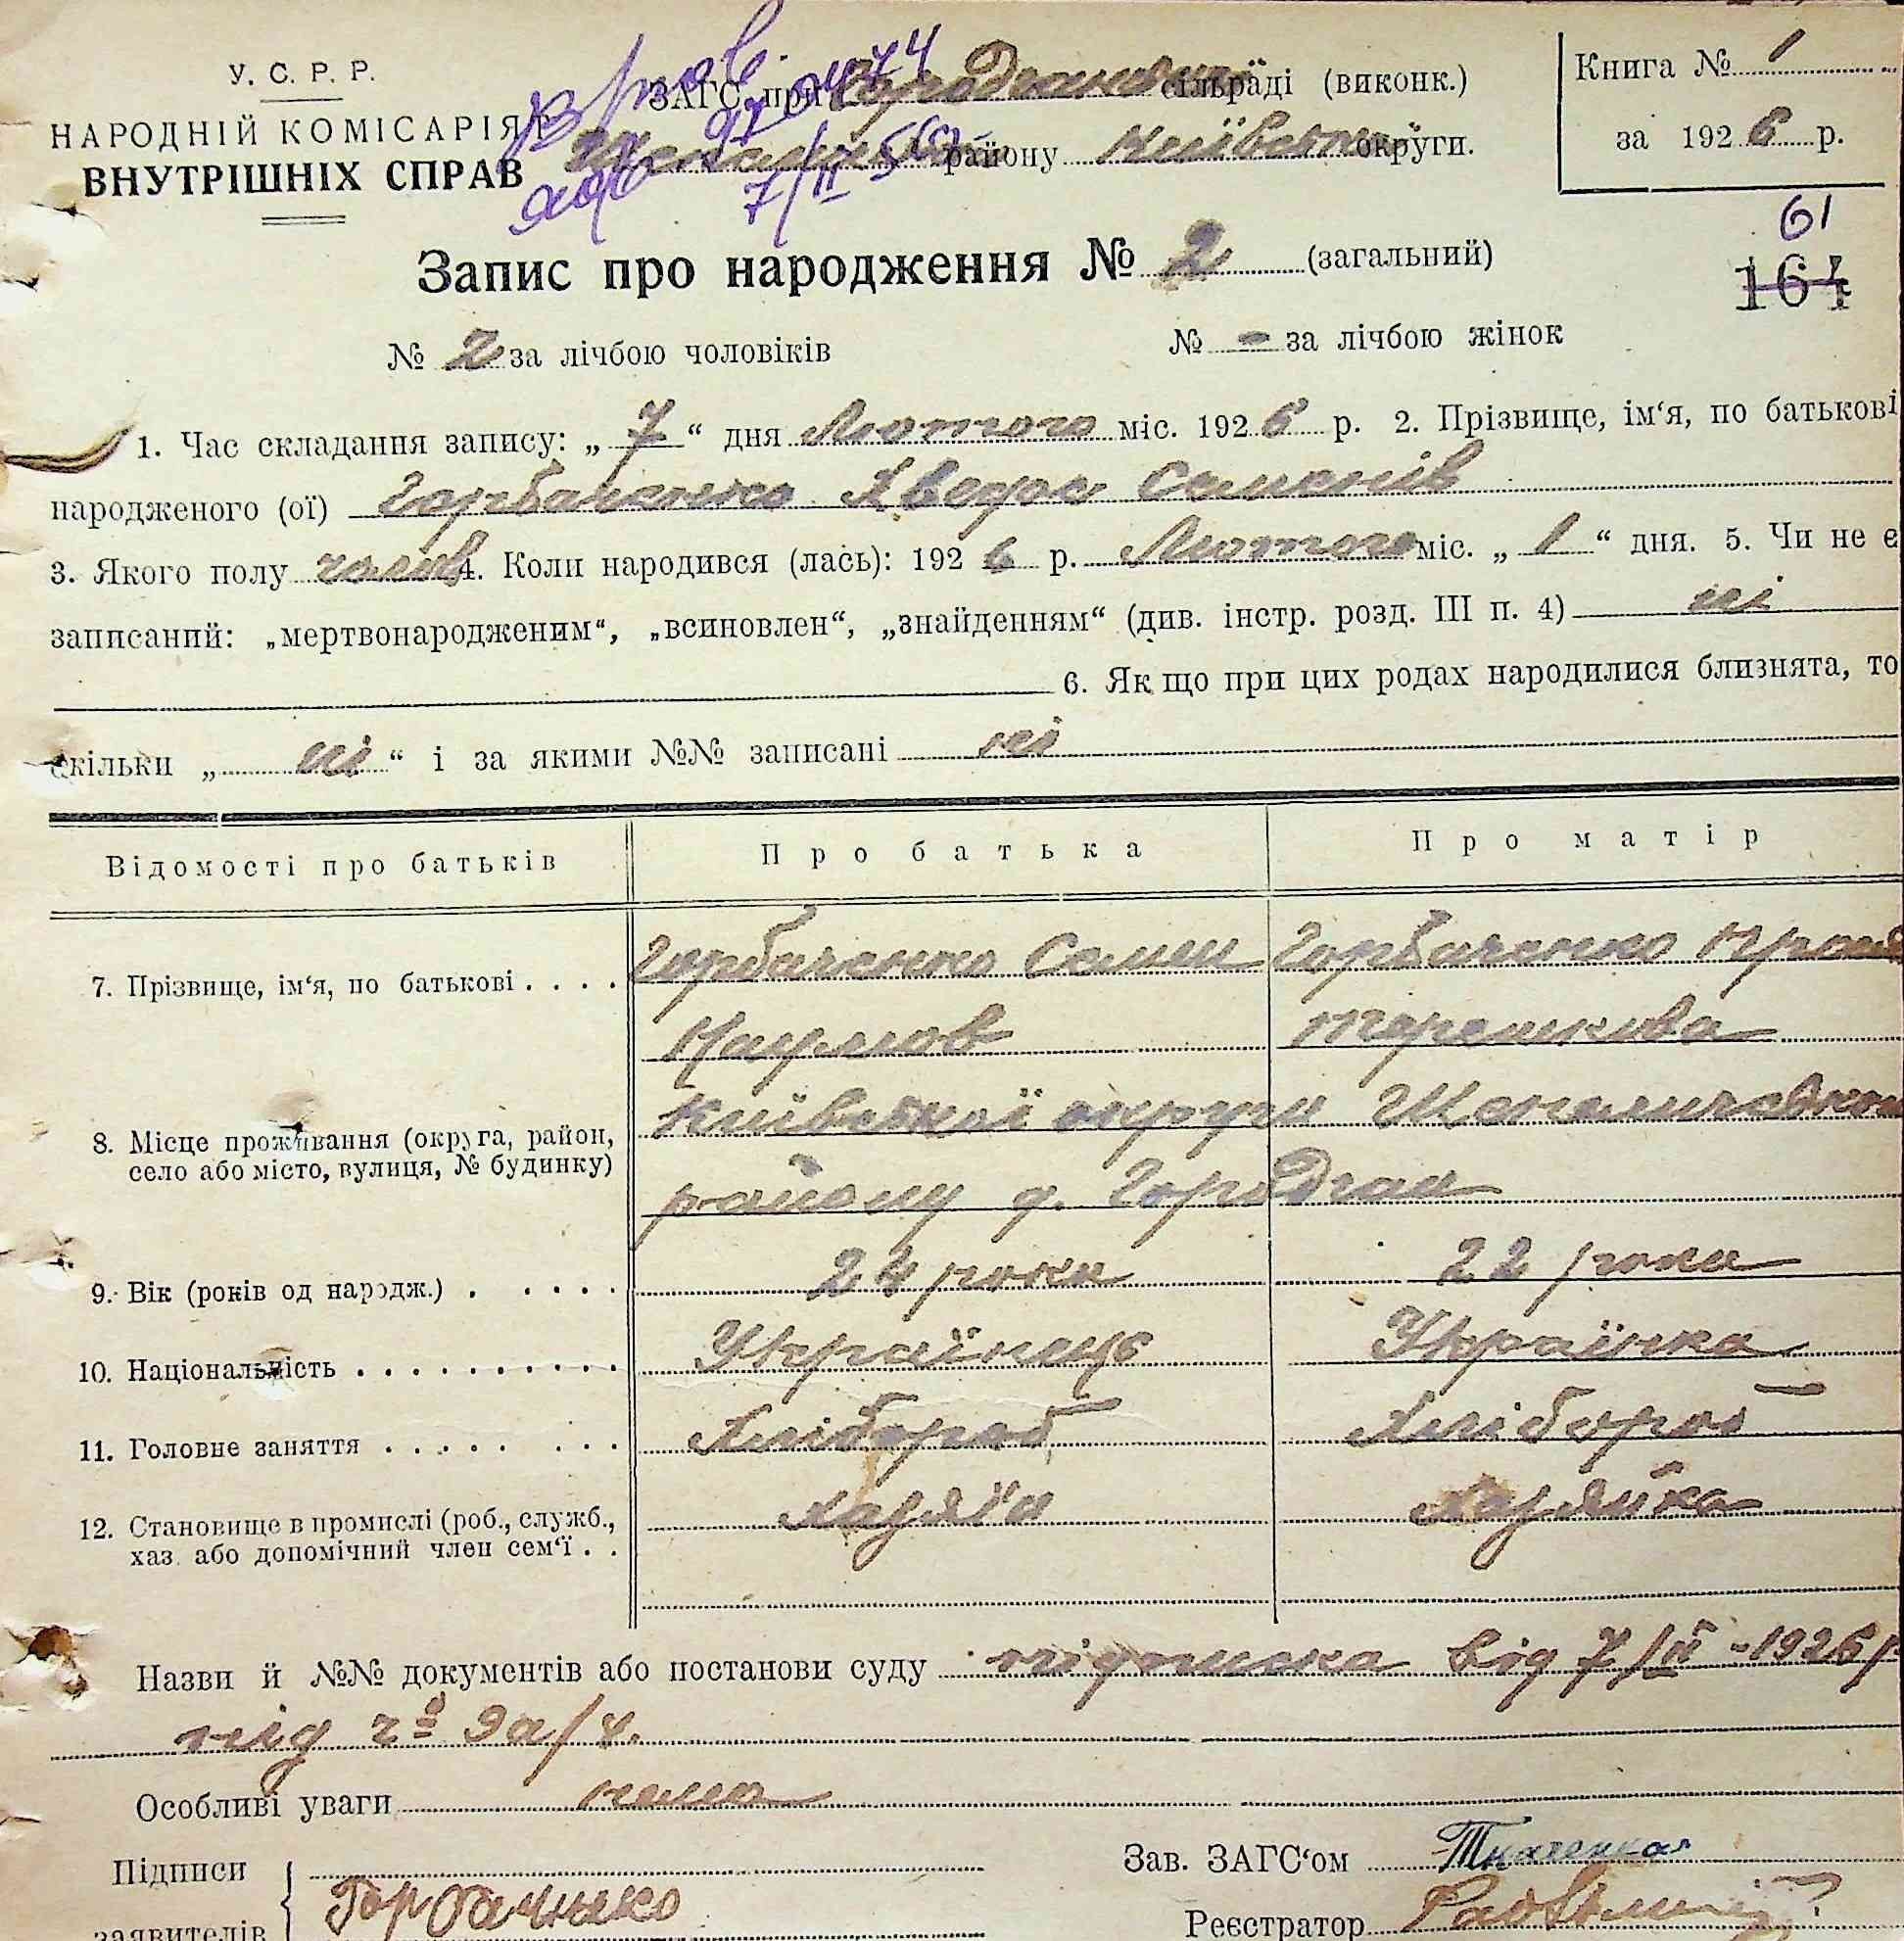 У. С. Р. Р.
НАРОДНІЙ КОМІСАРІЯТ
ВНУТРІШНІХ СПРАВ
ЗАГС при сільраді (виконк.)
району Київської округи.
7/II
Книга № 1
за 1926 р.
61
164
Запис про народження № 2 (загальний)
№ 2 за лічбою чоловіків № - за лічбою жінок
1. Час складання запису: „ 7 “ дня Лютого міс. 1926 р. 2. Прізвище, ім‘я, по батькові
народженого (ої) Горбаченко Хведос Семенів
3. Якого полу чолов 4. Коли народився (лась): 1926 р. Лютого міс. „ 1 “ дня. 5. Чи не є
записаний: „мертвонародженим“, „всиновлен“, „знайденням“ (див. інстр. розд. III п. 4) ні
6. Як що при цих родах народилися близнята, то
скільки „ ні “ і за якими №№ записані ні
Відомості про батьків Про батька Про матір
7. Прізвище, ім‘я, по батькові . . . . Горбаченко Семен Горбаченко
Наумов Терешкова
8. Місце проживання (округа, район, село або місто, вулиця, № будинку) Київської округи
району с. Городчан
9. Вік (років од народж.) . . . . . 24 роки 22 роки
10. Національність . . . . . . . . . . Українець Українка
11. Головне заняття . . . . . . . . Хлібороб Хлібороб
12. Становище в промислі (роб., служб., хаз. або допомічний член сем‘ї . . Хазяїн Хазяйка
Назви й №№ документів або постанови суду підписка від 7/II - 1926 р.
під ч° 9а/ч.
Особливі уваги нема
Підписи
заявителів Горбаченко
Зав. ЗАГС‘ом Ткаченко
Реєстратор